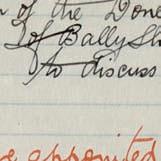 of the Done
of Bally Sh
to discuss
appointed